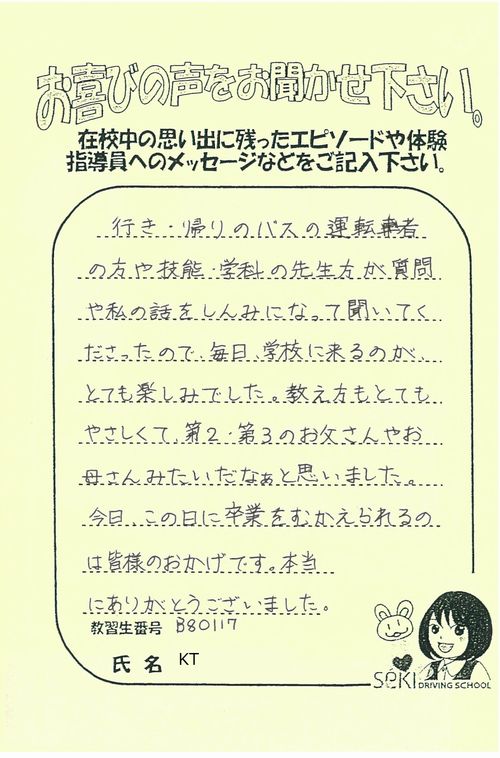 お喜びの声をお聞かせ下さい。
在校中の思い出に残ったエピソードや体験
指導員へのメッセージなどをご記入下さい。
行き・帰りのバスの運転者
の方や技能・学科の先生方が質問
や私の話をしんみになって聞いてく
ださったので、毎日、学校に来るのが、
とても楽しみでした。教え方もとても
やさしくて、第2・第3のお父さんやお
母さんみたいだなぁと思いました。
今日、この日に卒業をむかえられるの
は皆様のおかげです。本当
にありがとうございました。
教習生番号 B80117
氏名 KT
SEKI DRIVING SCHOOL